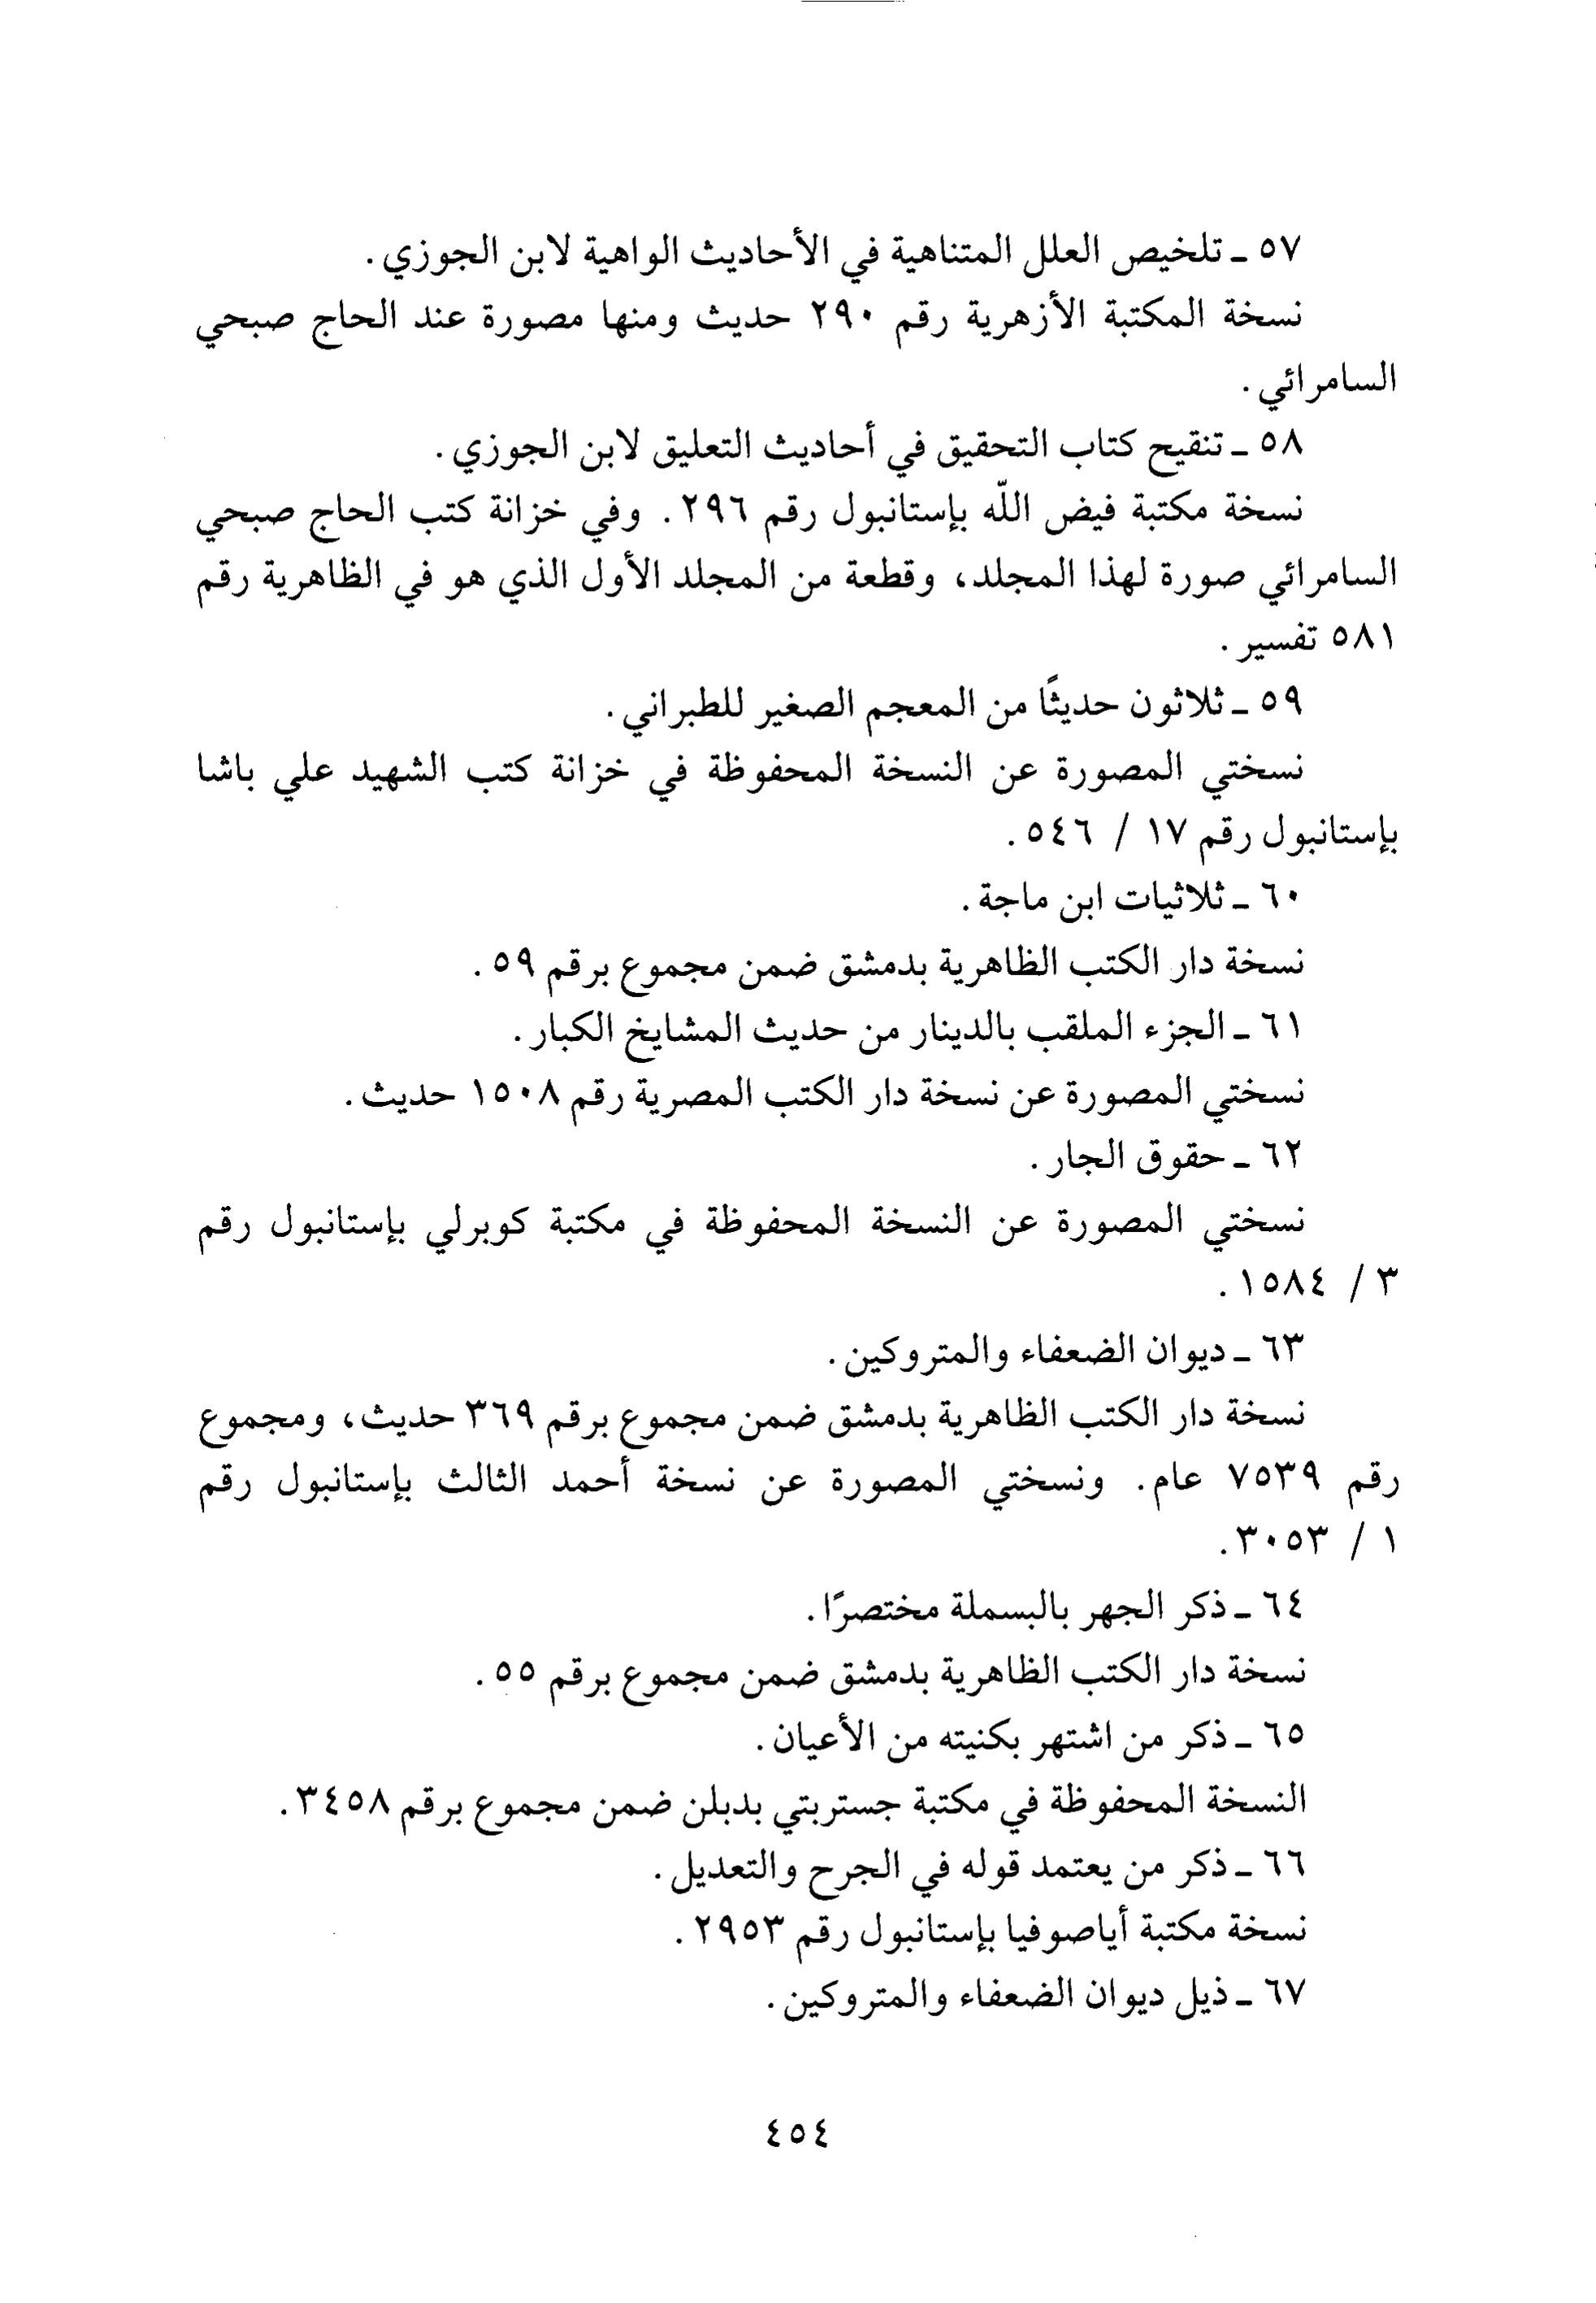 ٥٧ ـ تلخيص العلل المتناهية في الأحاديث الواهية لابن الجوزي.
نسخة المكتبة الأزهرية رقم ٢٩٠ حديث ومنها مصورة عند الحاج صبحي
السامرائي.
٥٨ ـ تنقيح كتاب التحقيق في أحاديث التعليق لابن الجوزي.
نسخة مكتبة فيض اللّه بإستانبول رقم ٢٩٦. وفي خزانة كتب الحاج صبحي
السامرائي صورة لهذا المجلد، وقطعة من المجلد الأول الذي هو في الظاهرية رقم
٥٨١ تفسير.
٥٩ ـ ثلاثون حديثًا من المعجم الصغير للطبراني.
نسختي المصورة عن النسخة المحفوظة في خزانة كتب الشهيد علي باشا
بإستانبول رقم ١٧ / ٥٤٦.
٦٠ ـ ثلاثيات ابن ماجة.
نسخة دار الكتب الظاهرية بدمشق ضمن مجموع برقم ٥٩.
٦١ ـ الجزء الملقب بالدينار من حديث المشايخ الكبار.
نسختي المصورة عن نسخة دار الكتب المصرية رقم ١٥٠٨ حديث.
٦٢ ـ حقوق الجار.
نسختي المصورة عن النسخة المحفوظة في مكتبة كوبرلي بإستانبول رقم
٣ / ١٥٨٤.
٦٣ ـ ديوان الضعفاء والمتروكين.
نسخة دار الكتب الظاهرية بدمشق ضمن مجموع برقم ٣٦٩ حديث، ومجموع
رقم ٧٥٣٩ عام. ونسختي المصورة عن نسخة أحمد الثالث بإستانبول رقم
١ / ٣٠٥٣.
٦٤ ـ ذكر الجهر بالبسملة مختصرًا.
نسخة دار الكتب الظاهرية بدمشق ضمن مجموع برقم ٥٥.
٦٥ ـ ذكر من اشتهر بكنيته من الأعيان.
النسخة المحفوظة في مكتبة جستربتي بدبلن ضمن مجموع برقم ٣٤٥٨.
٦٦ ـ ذكر من يعتمد قوله في الجرح والتعديل.
نسخة مكتبة أياصوفيا بإستانبول رقم ٢٩٥٣.
٦٧ ـ ذيل ديوان الضعفاء والمتروكين.
٤٥٤